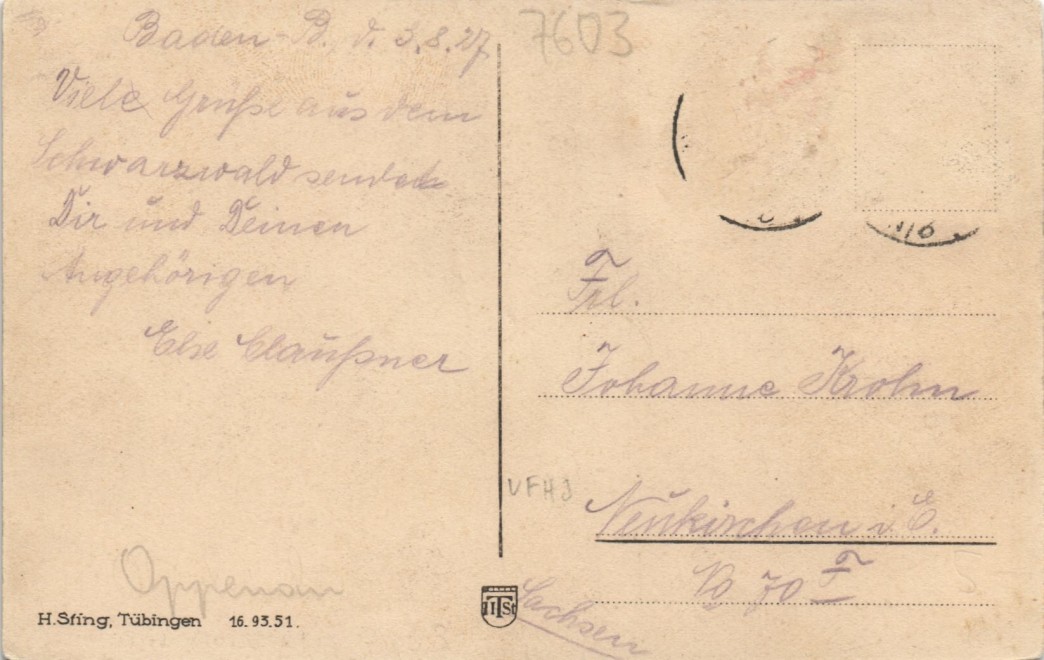 Baden-B. d. 3.8.27
7603
Viele Grüße aus dem
Schwarzwald sendet
Dir und Deinen
Angehörigen
Else Claußner
Frl.
Johanne Krohn
VFHJ
Neukirchen i. E.
No 70 I
Sachsen
Oppenau
H. Sting, Tübingen 16.93.51.
HTSt